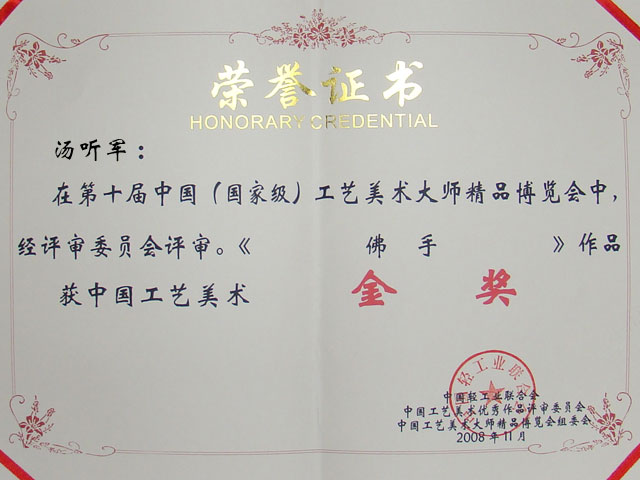 荣誉证书
HONORARY CREDENTIAL
汤听军：
在第十届中国（国家级）工艺美术大师精品博览会中，
经评审委员会评审。《 佛手 》作品
获中国工艺美术 金奖
轻工业联合
中国轻工业联合会
中国工艺美术优秀作品评审委员会
中国工艺美术大师精品博览会组委会
2008年11月